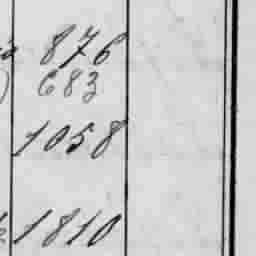 876
683
1058
1810